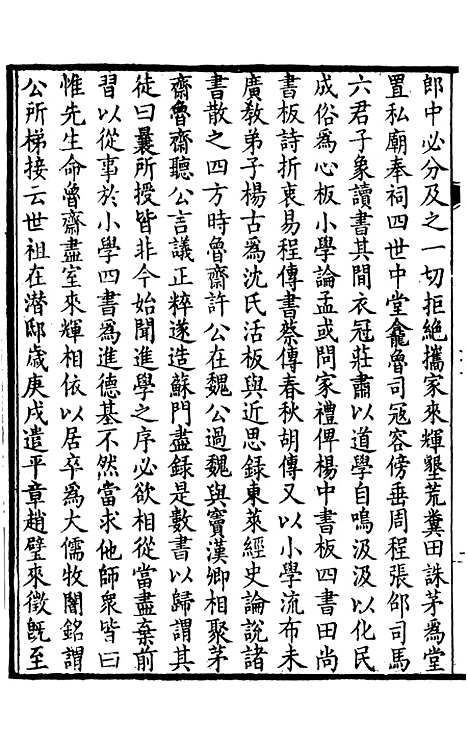 郎中必分及之一切拒絶攜家來輝墾荒糞田誅茅爲堂
置私廟奉祠四世中堂龕魯司冦容傍垂周程張邵司馬
六君子象讀書其間衣冠莊肅以道學自鳴汲汲以化民
成俗爲心板小學論孟或問家禮俾楊中書板四書田尚
書板詩折衷易程傳書蔡傳春秋胡傳又以小學流布未
廣敎弟子楊古爲沈氏活板與近思録東萊經史論說諸
書散之四方時魯齋許公在魏公過魏與竇漢卿相聚茅
齋魯齋聽公言議正粹遂造蘇門盡録是數書以歸謂其
徒曰曩所授皆非今始聞進學之序必欲相從當盡棄前
習以從事於小學四書爲進德基不然當求他師衆皆曰
惟先生命魯齋盡室來輝相依以居卒爲大儒牧闇銘謂
公所梯接云世祖在潜邸歳庚戌遣平章趙璧來徵旣至